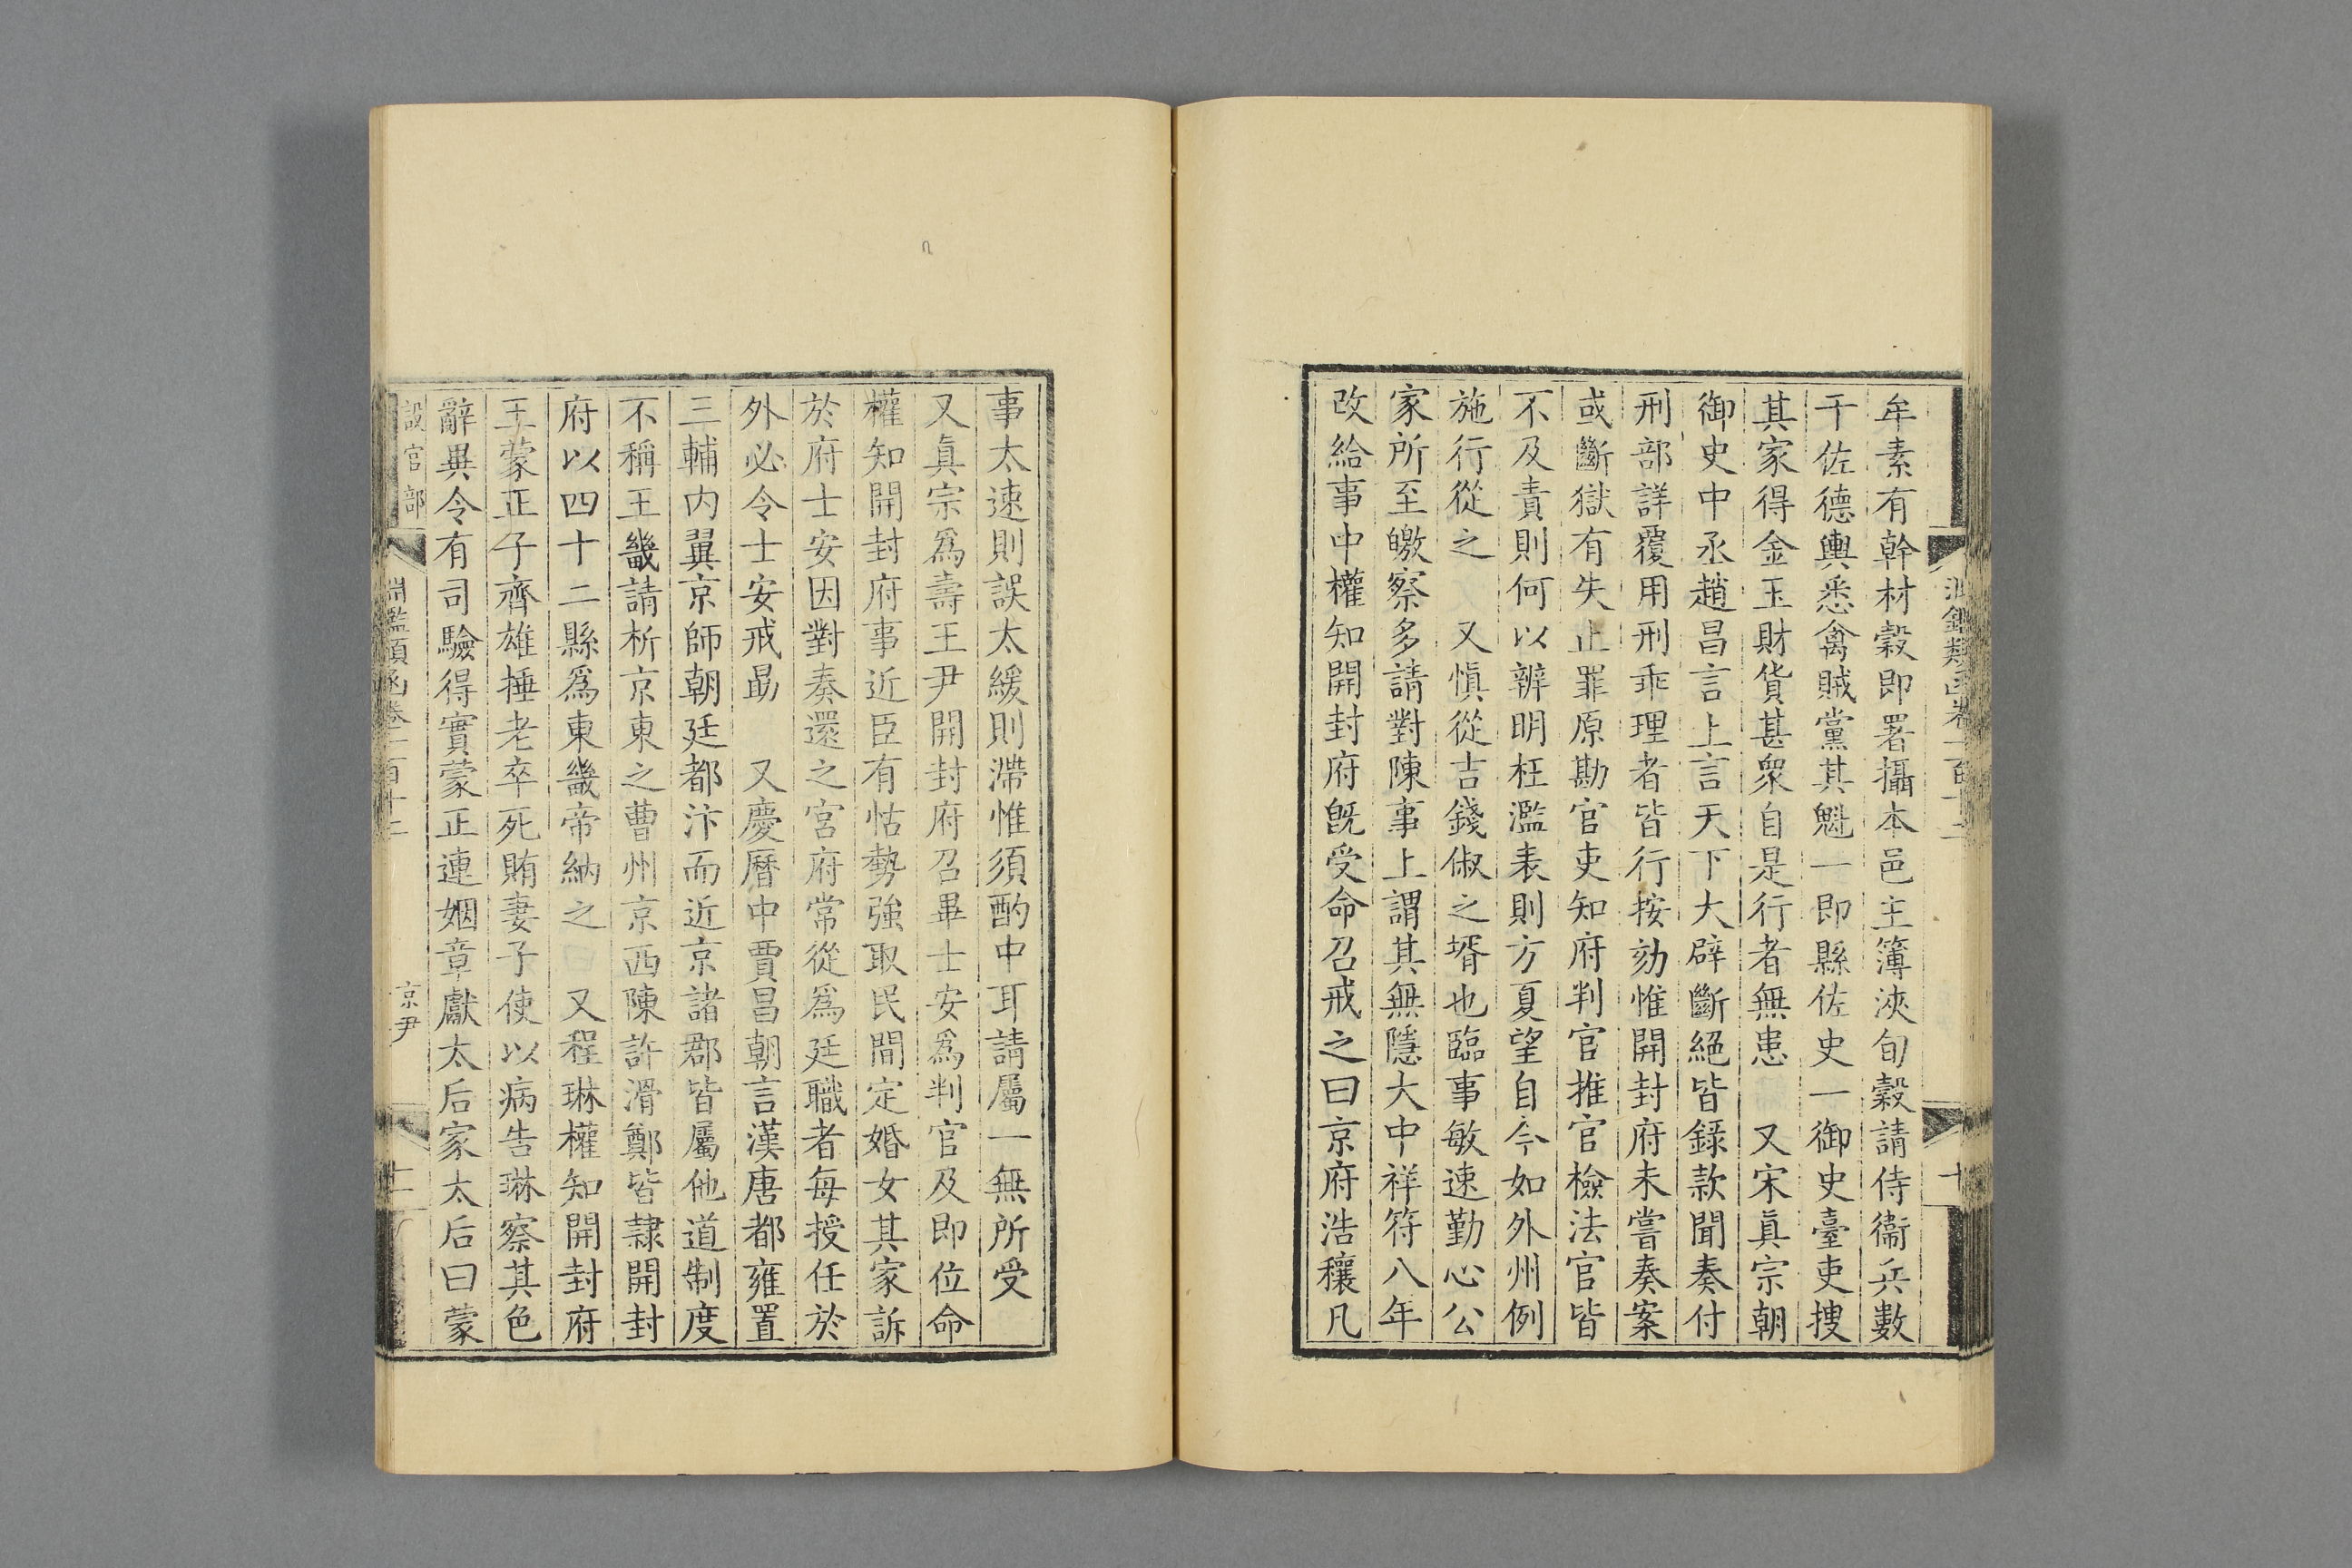 牟素有幹材穀即署攝本邑主簿浹旬穀請侍衞兵數
千佐德輿悉禽賊黨其魁一即縣佐史一御史臺吏搜
其家得金玉財貨甚衆自是行者無患　又宋眞宗朝
御史中丞趙昌言上言天下大辟斷絕皆錄款聞奏付
刑部詳覆用刑乖理者皆行按劾惟開封府未嘗奏案
或斷獄有失止罪原勘官吏知府判官推官檢法官皆
不及責則何以辨明枉濫表則方夏望自今如外州例
施行從之　又愼從吉錢俶之壻也臨事敏速勤心公
家所至皦察多請對陳事上謂其無隱大中祥符八年
改給事中權知開封府旣受命召戒之曰京府浩穰凡
事太速則誤太緩則滯惟須酌中耳請屬一無所受
又眞宗爲壽王尹開封府召畢士安爲判官及即位命
權知開封府事近臣有怙勢強取民間定婚女其家訴
於府士安因對奏還之宮府常從爲廷職者每授任於
外必令士安戒勗　又慶曆中賈昌朝言漢唐都雍置
三輔内翼京師朝廷都汴而近京諸郡皆屬他道制度
不稱王畿請析京東之曹州京西陳許滑鄭皆隷開封
府以四十二縣爲東畿帝納之　又程琳權知開封府
王蒙正子齊雄捶老卒死賄妻子使以病告琳察其色
辭異令有司驗得實蒙正連姻章獻太后家太后曰蒙
設官部　淵鑑類函卷一百十二　京尹　十一